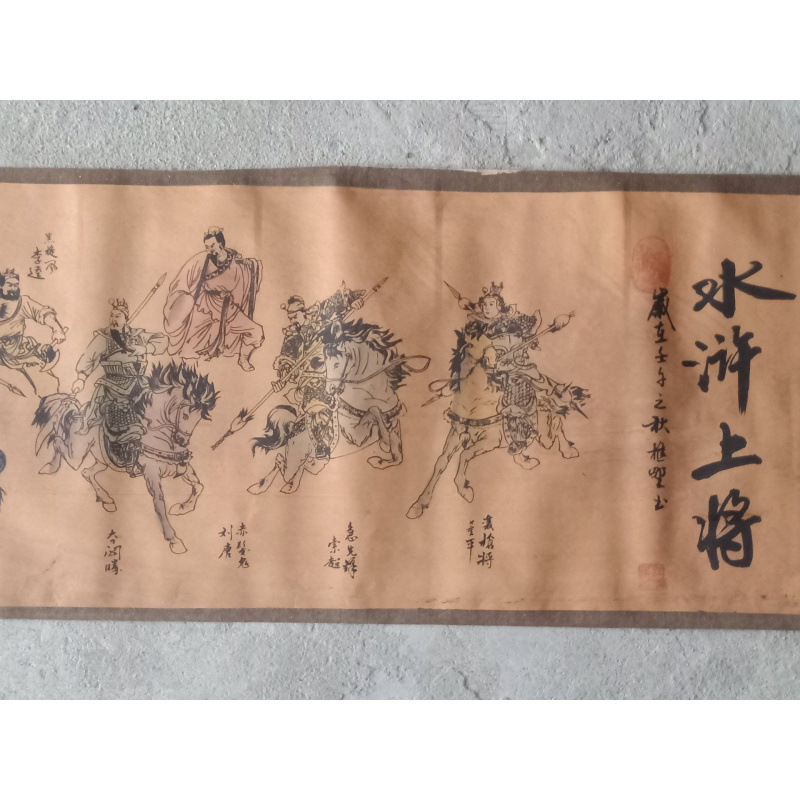 水浒上将
岁在壬午之秋
双枪将
董平
急先锋
索超
赤发鬼
刘唐
大刀关胜
黑旋风
李逵